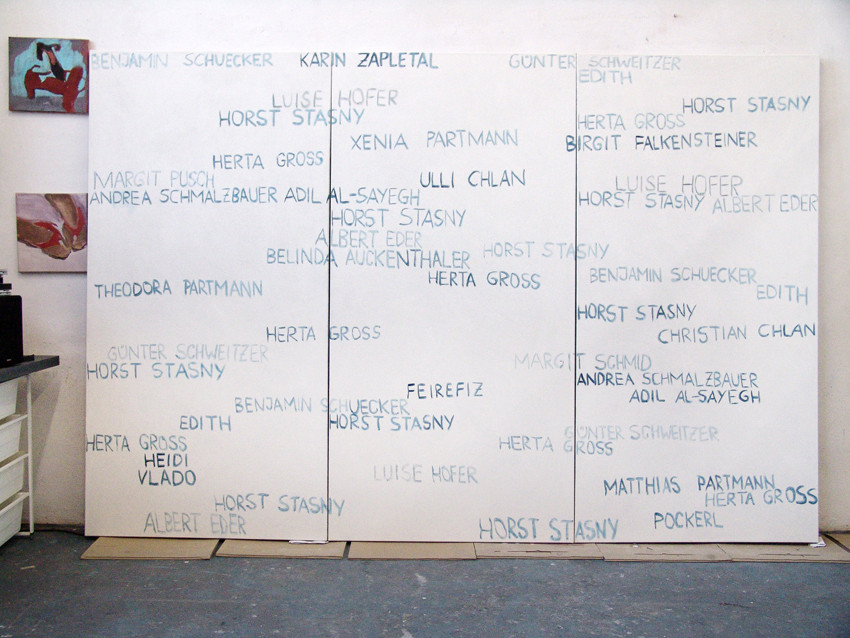 BENJAMIN SCHUECKER KARIN ZAPLETAL GÜNTER SCHWEITZER
EDITH
LUISE HOFER HORST STASNY
HORST STASNY HERTA GROSS
XENIA PARTMANN BIRGIT FALKENSTEINER
HERTA GROSS
MARGIT PUSCH ULLI CHLAN LUISE HOFER
ANDREA SCHMALZBAUER ADIL AL-SAYEGH HORST STASNY ALBERT EDER
HORST STASNY
ALBERT EDER
BELINDA AUCKENTHALER HORST STASNY
HERTA GROSS BENJAMIN SCHUECKER
THEODORA PARTMANN EDITH
HORST STASNY
HERTA GROSS CHRISTIAN CHLAN
GÜNTER SCHWEITZER MARGIT SCHMID
HORST STASNY ANDREA SCHMALZBAUER
FEIREFIZ ADIL AL-SAYEGH
BENJAMIN SCHUECKER
EDITH HORST STASNY
GÜNTER SCHWEITZER
HERTA GROSS HERTA GROSS
HEIDI
VLADO LUISE HOFER
MATTHIAS PARTMANN
HORST STASNY HERTA GROSS
ALBERT EDER HORST STASNY POCKERL